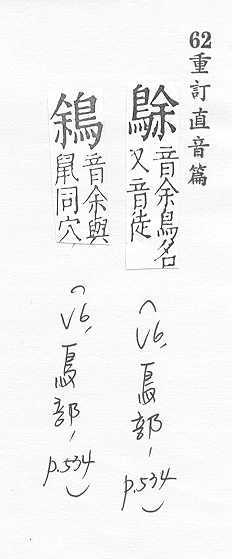 62重訂直音篇
音余鳥名
又音徒
(V6, 鳥部, p.534)
鵌音余與
鼠同穴
(V6, 鳥部, p.534)